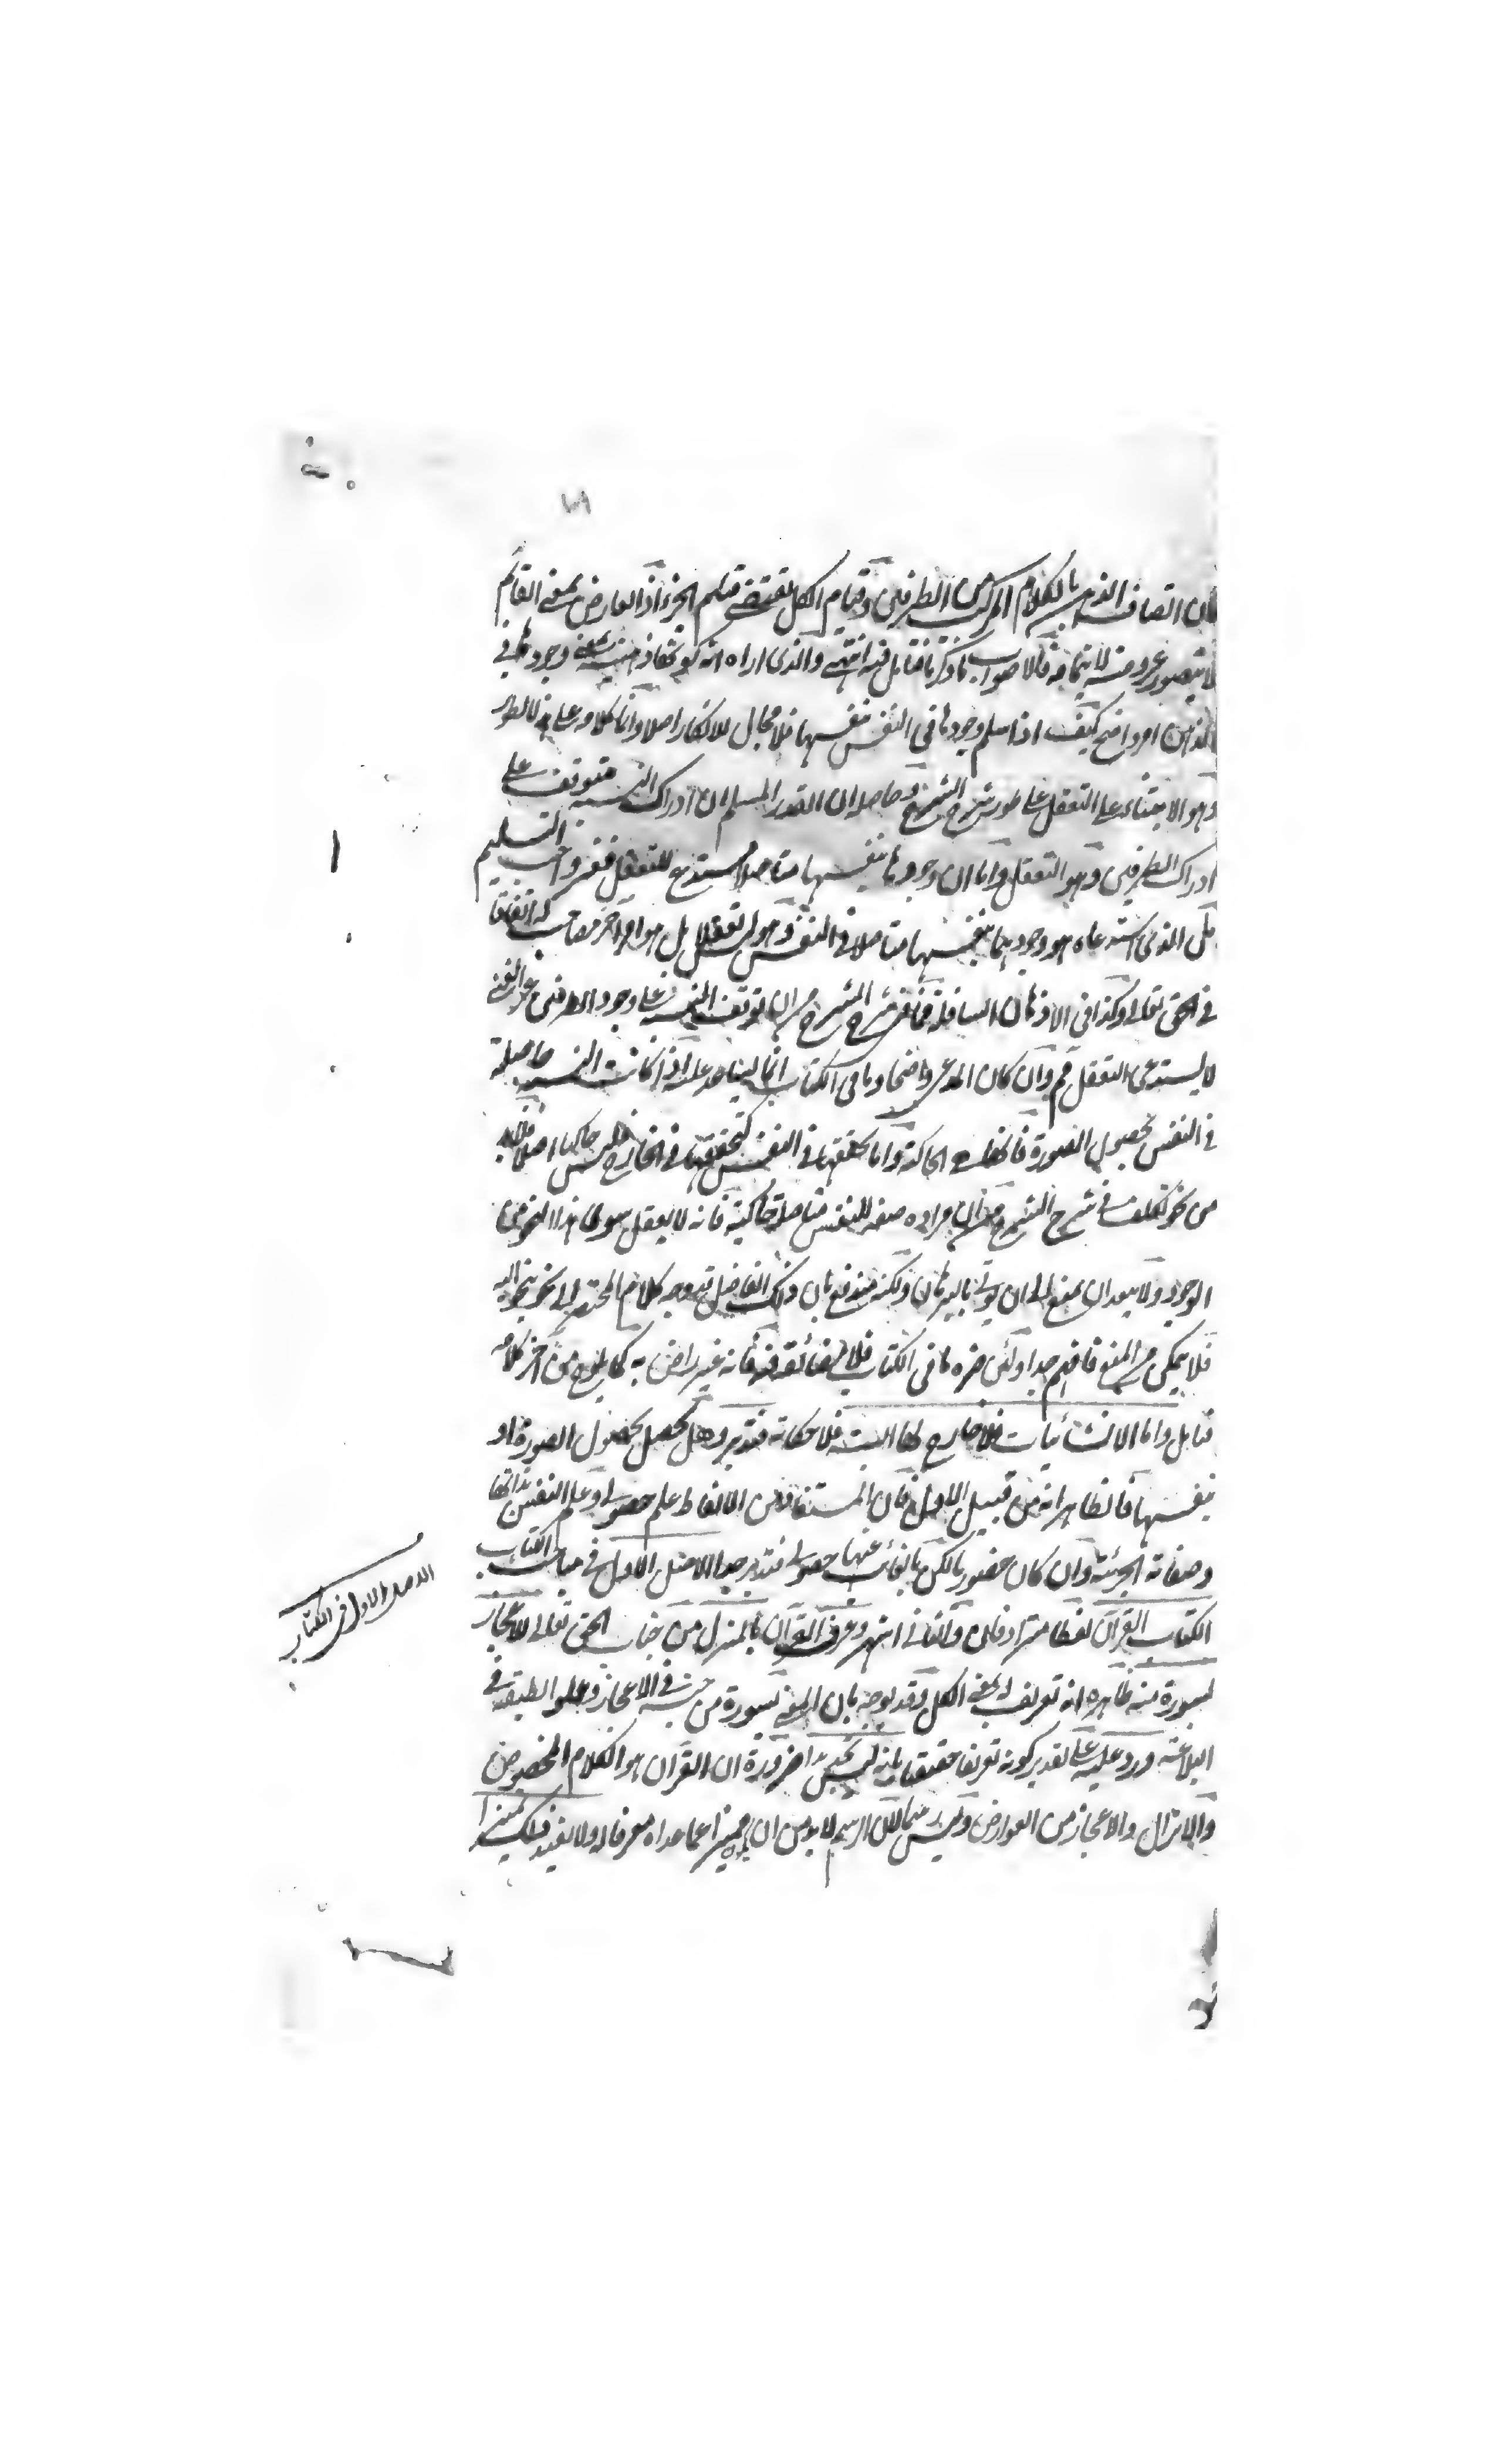 فان اتصاف الذهن بالكلام المركب من الطرفين وقيام الكل يقتضي قيام الجزء اذ العارض بمعنى القائم
لا يتصور عروضه لا بتمامه فالاصوب ما ذكرنا فتامل فيه انتهى والذي اراه انه كونها ذهنية بمعنى وجودها في
الذهن امر واضح كيف اذا سلم وجودها في النفس بنفسها فلا مجال للانكار اصلا وانما كلامه على هذا الطور
وهو الابتناء على التعقل على طور شرح الشرح وحاصله ان القدر المسلم ان ادراك النسبة متوقف على
ادراك الطرفين وهو التعقل واما ان وجودها بنفسها متاصلا مستدع للتعقل فغير واجب التسليم
بل الذي استدعاه هو وجودهما بنفسها متاصلا في النفس وهو ليس تعقلا بل هو امر آخر مصاحب له اتفاقا
في الحق تعالى وكذا في الاذهان السافلة فما في شرح الشرح من ان توقف النسبة على وجود الطرفين
لا يستدعي التعقل تم وان كان المدعى واضحا وما في الكتاب انما يساعد عليه اذا كانت النسبة حاصلة
في النفس بحصول الصورة فانها هي الحاكية واما تحققها في النفس كتحققها في الخارج فليس حاكيا اصلا
من نحو تكلف في شرح الشرح من ان مراده صفة للنفس متاصلة حاكية فانه لا يعقل سوى هذا النحو من
الوجود ولا يبعد ان يمنع الى ان يؤتى بالبرهان ولكنه مندفع بان ذلك الفاضل قد وجه كلام المختصر الى نحو
فلا يمكن من المنع فافهم جدا ولئن ضره ما في الكتاب فلا مضائقة فيه فانه غير راض به كما يلوح من آخر كلامه
فتامل واما الانشائيات فلا خارج لها البتة فلا حكاية فتدبر وهل يحصل بحصول الصورة او
بنفسها فالظاهر انه من قبيل الاول فان المستفاد من الالفاظ علم حصولي وعلم النفس بذاتها
وصفاته الجزئية وان كان حضوريا لكن بالغائب عنها حصولي فتدبر جدا الاصل الاول في مباحث الكتاب
الكتاب القرآن لفظا مترادفان والثاني اشهر وعرف القرآن بالمنزل من جناب الحق تعالى للاعجاز
بسورة منه ظاهره انه تعريف لمعنى الكل وقد يوجه بان المعنى بسورة من جنسه في الاعجاز وعلو الطبقة في
البلاغة ورد عليه على تقدير كونه تعريفا حقيقيا بانه ليس بحد ضرورة ان القرآن هو الكلام المخصوص
والانزال والاعجاز من العوارض وليس رسما لان الرسم لا بد من ان يميز عما عداه معرفا له ولا يفيد ذلك تمييزا
الاصل الاول في الكتاب